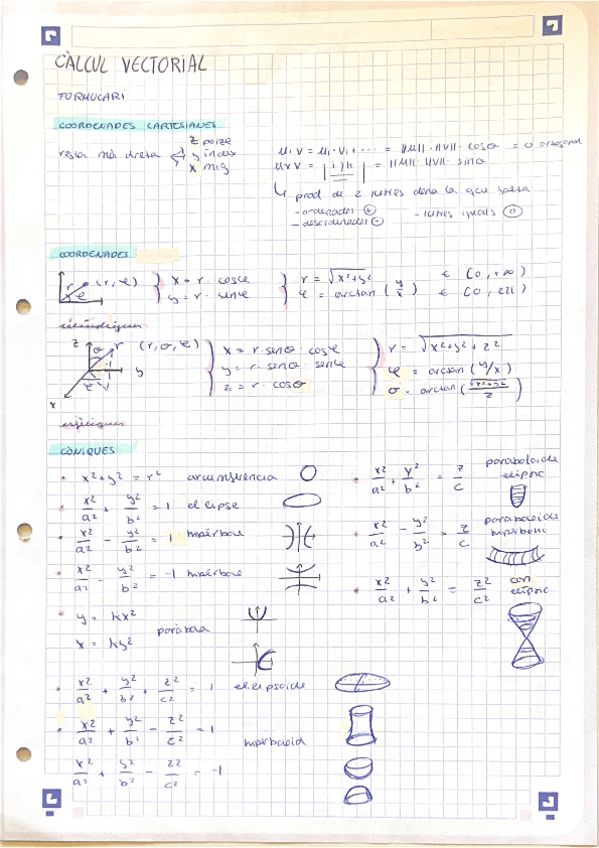 CÀLCUL VECTORIAL
FORMULARI
COORDENADES CARTESIANES
regla mà dreta z polze
y índex
x mig
u · v = u₁ · v₁ + ... = ||u|| · ||v|| · cosθ = 0 ortogonal
u x v = | i j k | = ||u|| · ||v|| · sinθ
↳ prod de 2 lletres dona la que falta
- ordenades ⊕ - lletres iguals ⓪
- desordenades ⊖
COORDENADES
(r, φ) x = r · cosφ r = √x²+y² ∈ [0, +∞)
y = r · senφ φ = arctan (y/x) ∈ [0, 2π)
cilíndriques
z r (r, θ, φ) x = r · senθ · cosφ r = √x²+y²+z²
θ y y = r · senθ · senφ φ = arctan (y/x)
φ z = r · cosθ θ = arctan (√x²+y²/z)
x
esfèriques
CÒNIQUES
• x²+y² = r² circumferència
• x²/a² + y²/b² = 1 el·lipse
• x²/a² - y²/b² = 1 hipèrbole
• x²/a² - y²/b² = -1 hipèrbole
• y = kx²
x = ky² paràbola
• x²/a² + y²/b² + z²/c² = 1 el·lipsoide
• x²/a² + y²/b² - z²/c² = 1
hiperboloid
x²/a² + y²/b² - z²/c² = -1
• x²/a² + y²/b² = z/c paraboloide
el·líptic
• x²/a² - y²/b² = z/c paraboloide
hiperbòlic
• x²/a² + y²/b² = z²/c² con
el·líptic